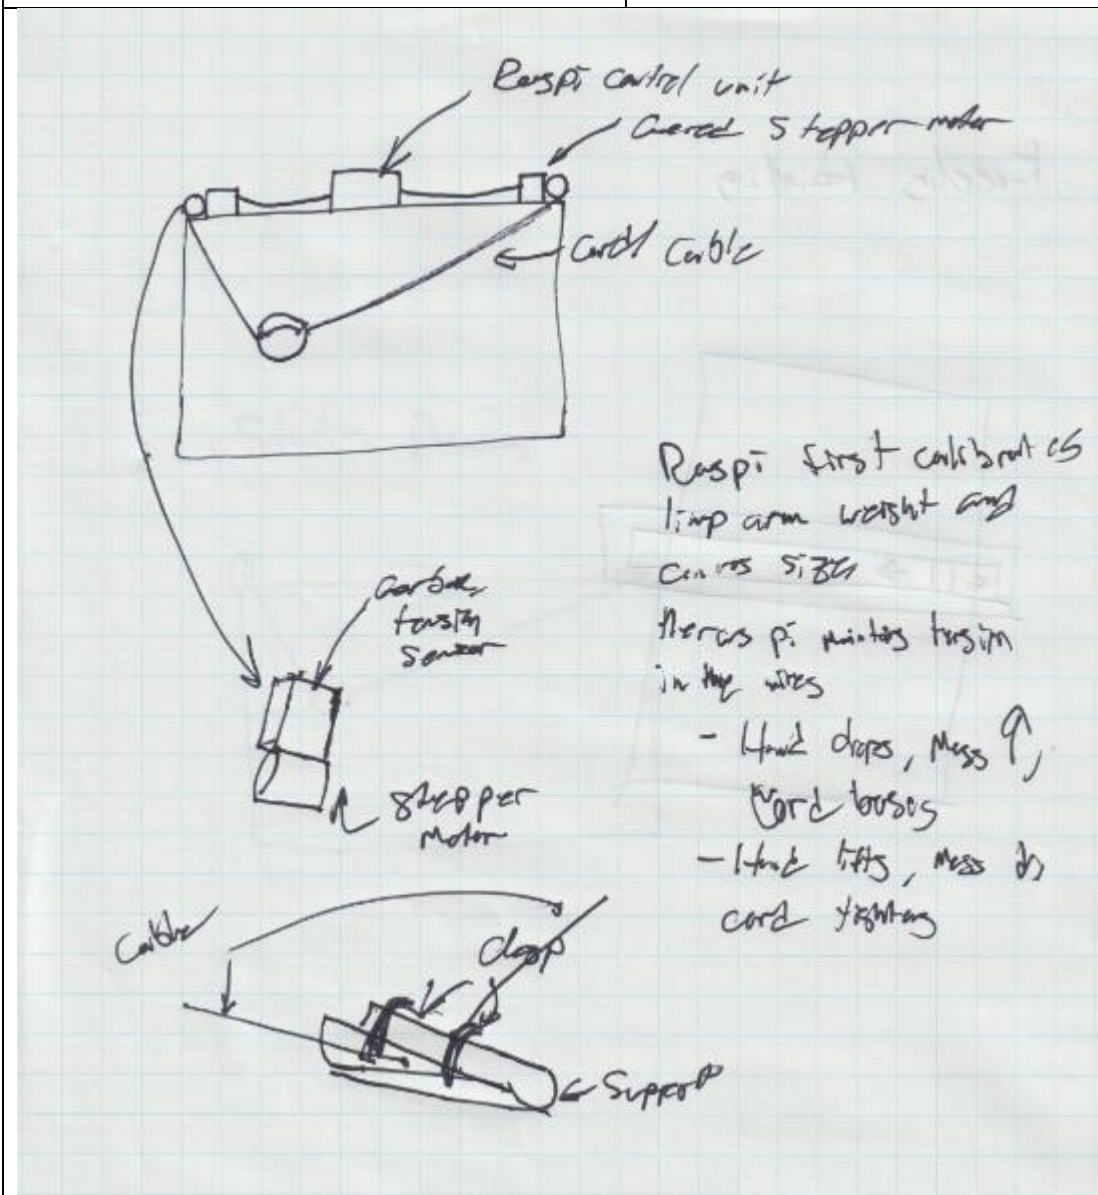 Raspi control unit
Geared stepper motor
Cord/ Cable
Raspi first calibrates
limp arm weight and
canvas size
pi monitors tension
in the wires
- Hand drops, Mass ↑,
Cord looses
- Hand lifts, Mass ↓,
cord tightens
tension
sensor
stepper
motor
Cable
clasp
Support